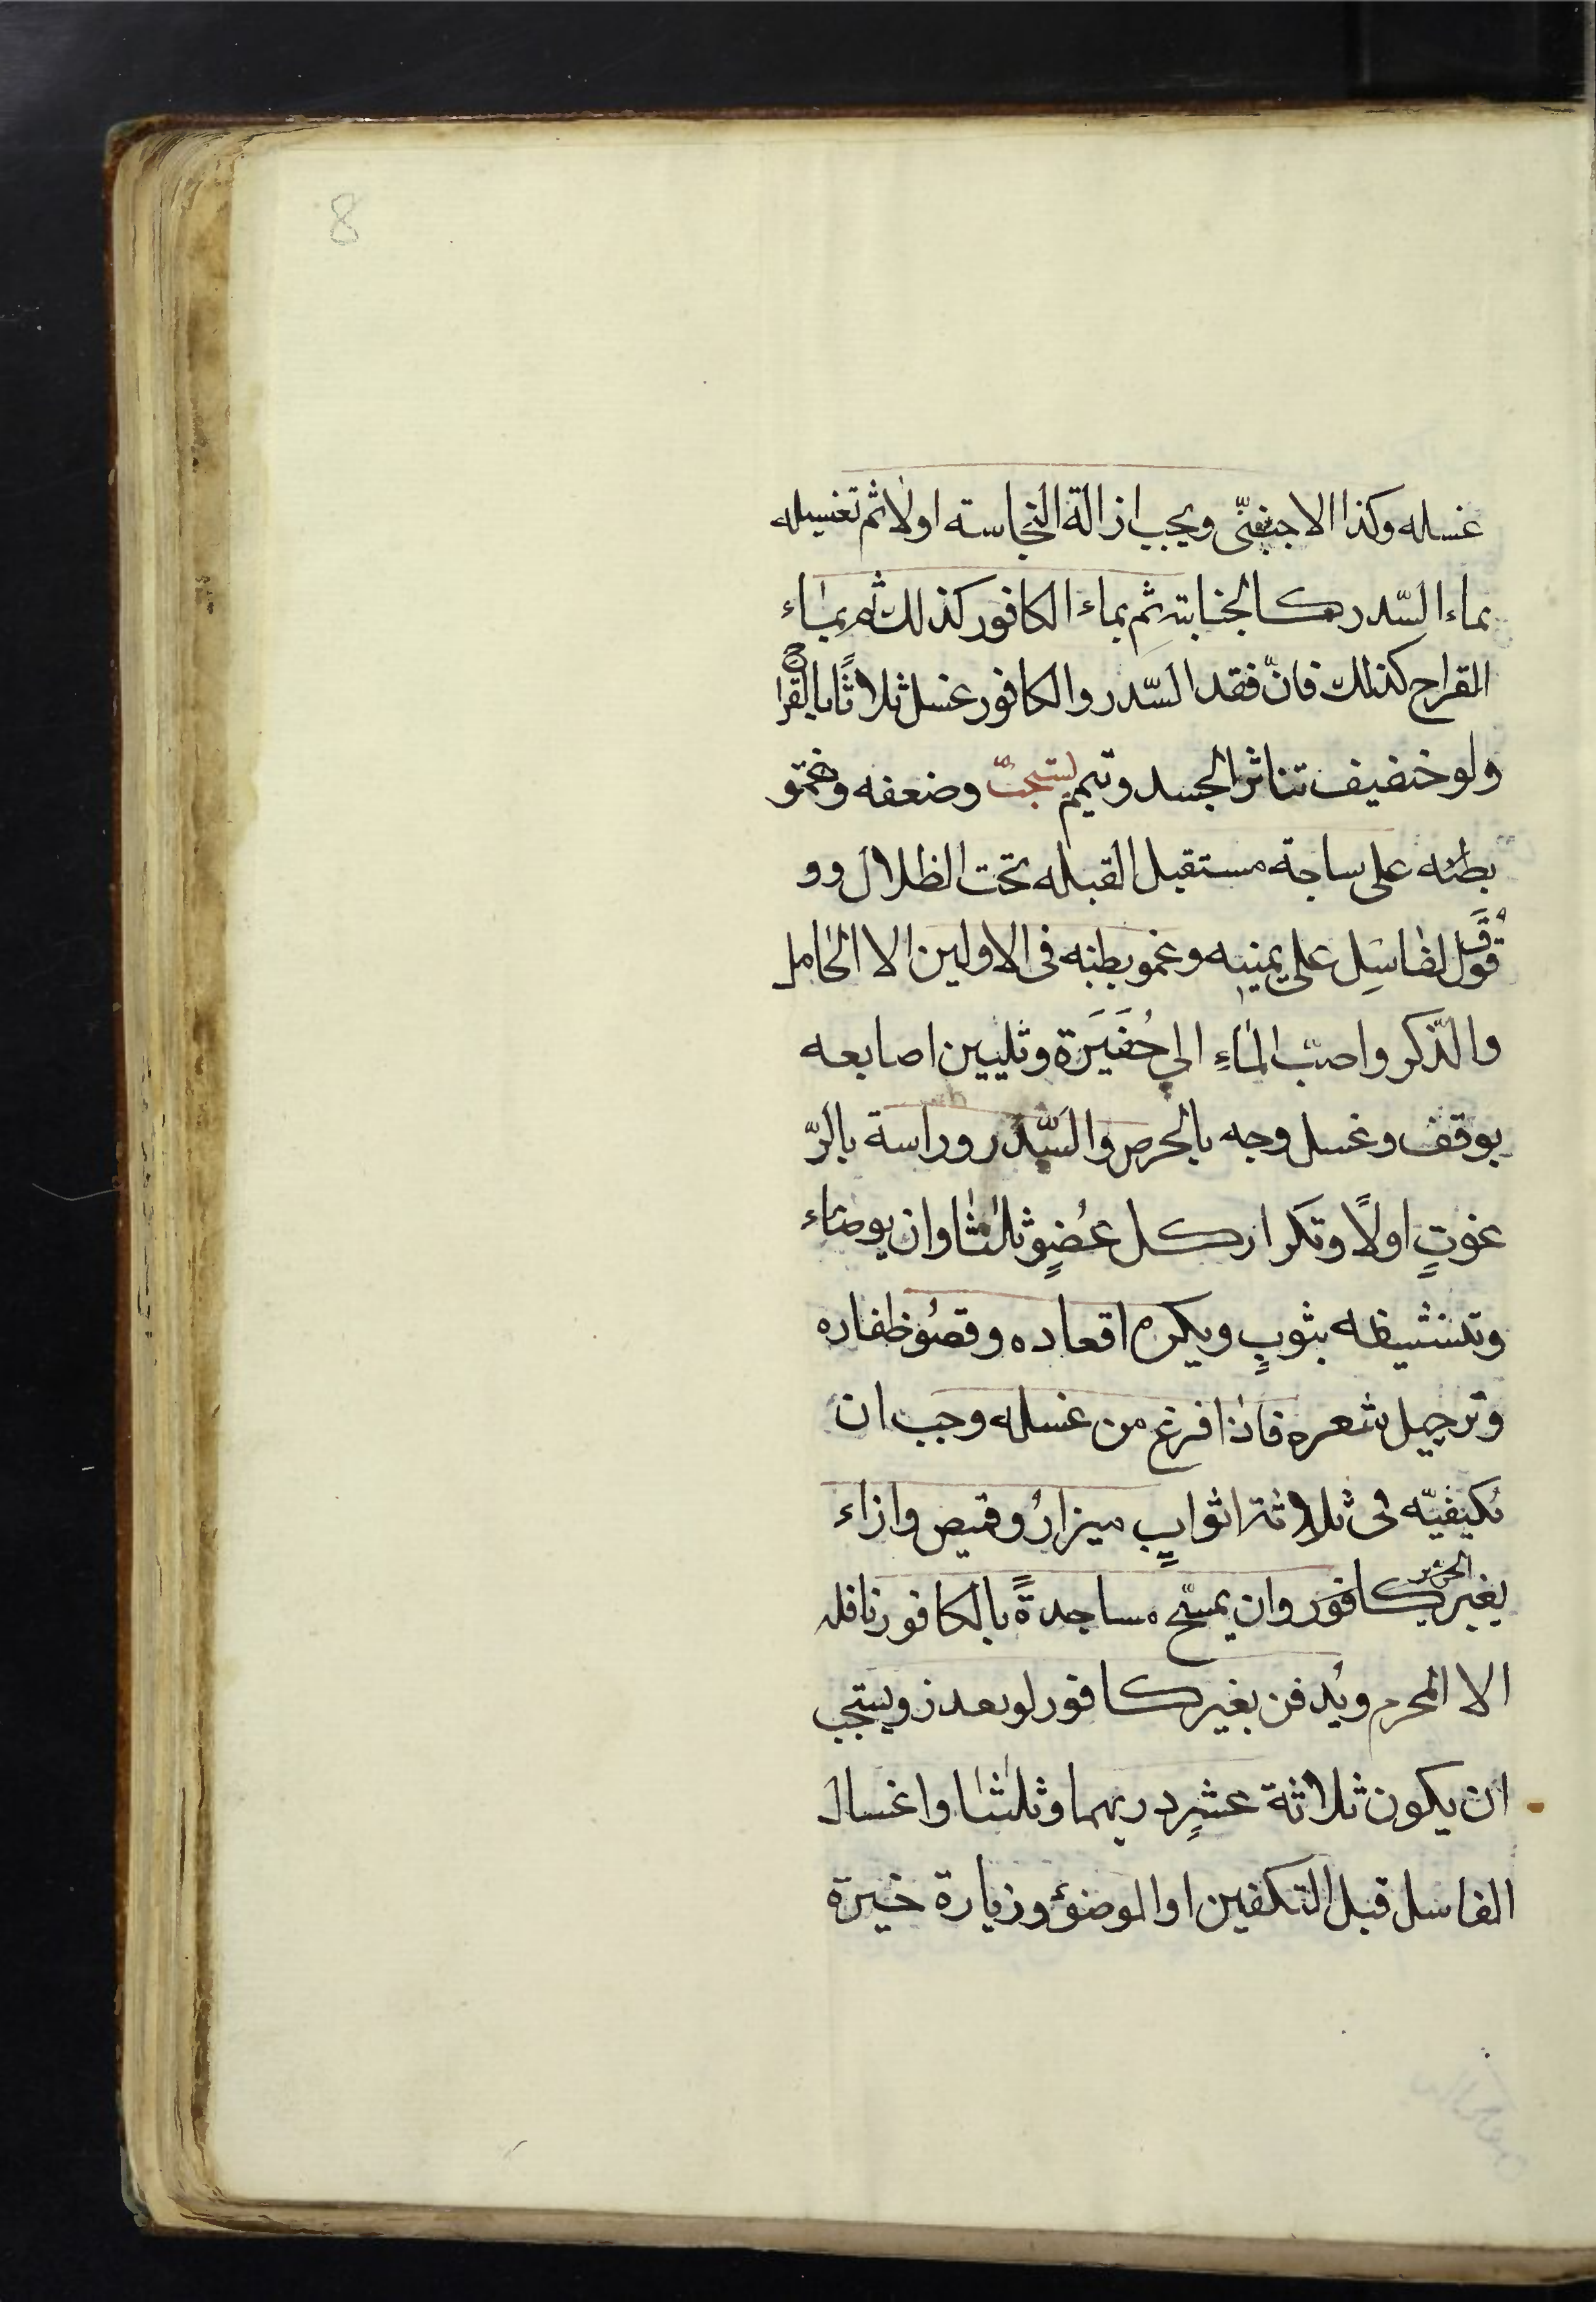 8
غسله وكذا الاجنبىّ ويجب ازالة النجاسته اولا ثم تغسيله
بماء السّدر كالجنابته ثم بماء الكافور كذلك ثم بماء
القراح كذلك فانّ فقد السّدر والكافور غسل ثلاثًا بالقراح
ولو خفيف تناثر الجسد وتيمم يستحبّ وضعفه وغمو
بطنه على ساجة مستقبل القبله تحت الظلال وو
قول لفاسِل على يمينه وغمو بطنه فى الاولين الا الحامل
والذّكر واصبّ الماءِ الى حُفَيَرَة وتليين اصابعه
بوقف وغسل وجه بالحرص والسِّدر وراسة بالرّ
غوتٍ اولًا وتكرار كل عُضوٍ ثلثا وان يوضاء
وتنشيظه بثوبٍ ويكره اقعاده وقصُوظفاره
وترجيل شعره فاذا فرغ من غسله وجب ان
تكيفيّه فى ثلاثة اثوابٍ ميزارُ وقيص وازاء
بغير الحرير كافور وان يمسّح مساجدةً بالكافور نافله
الا المحرم ويُدفن بغير كافور لوىعدز ويستجب
ان يكون ثلاثة عشرِ دريهما وثلثا واغسال
الفاسل قبل التكفين او الوضؤ وزيارة خيرة